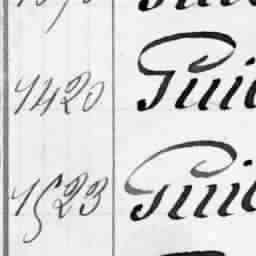 1420 Guil
1523 Guil